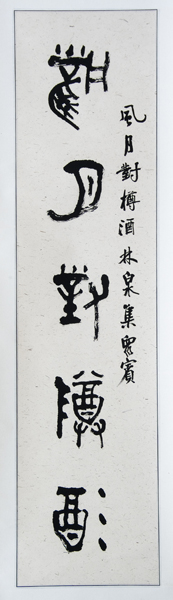 風月對樽酒林泉集眾賓
風月對樽酒